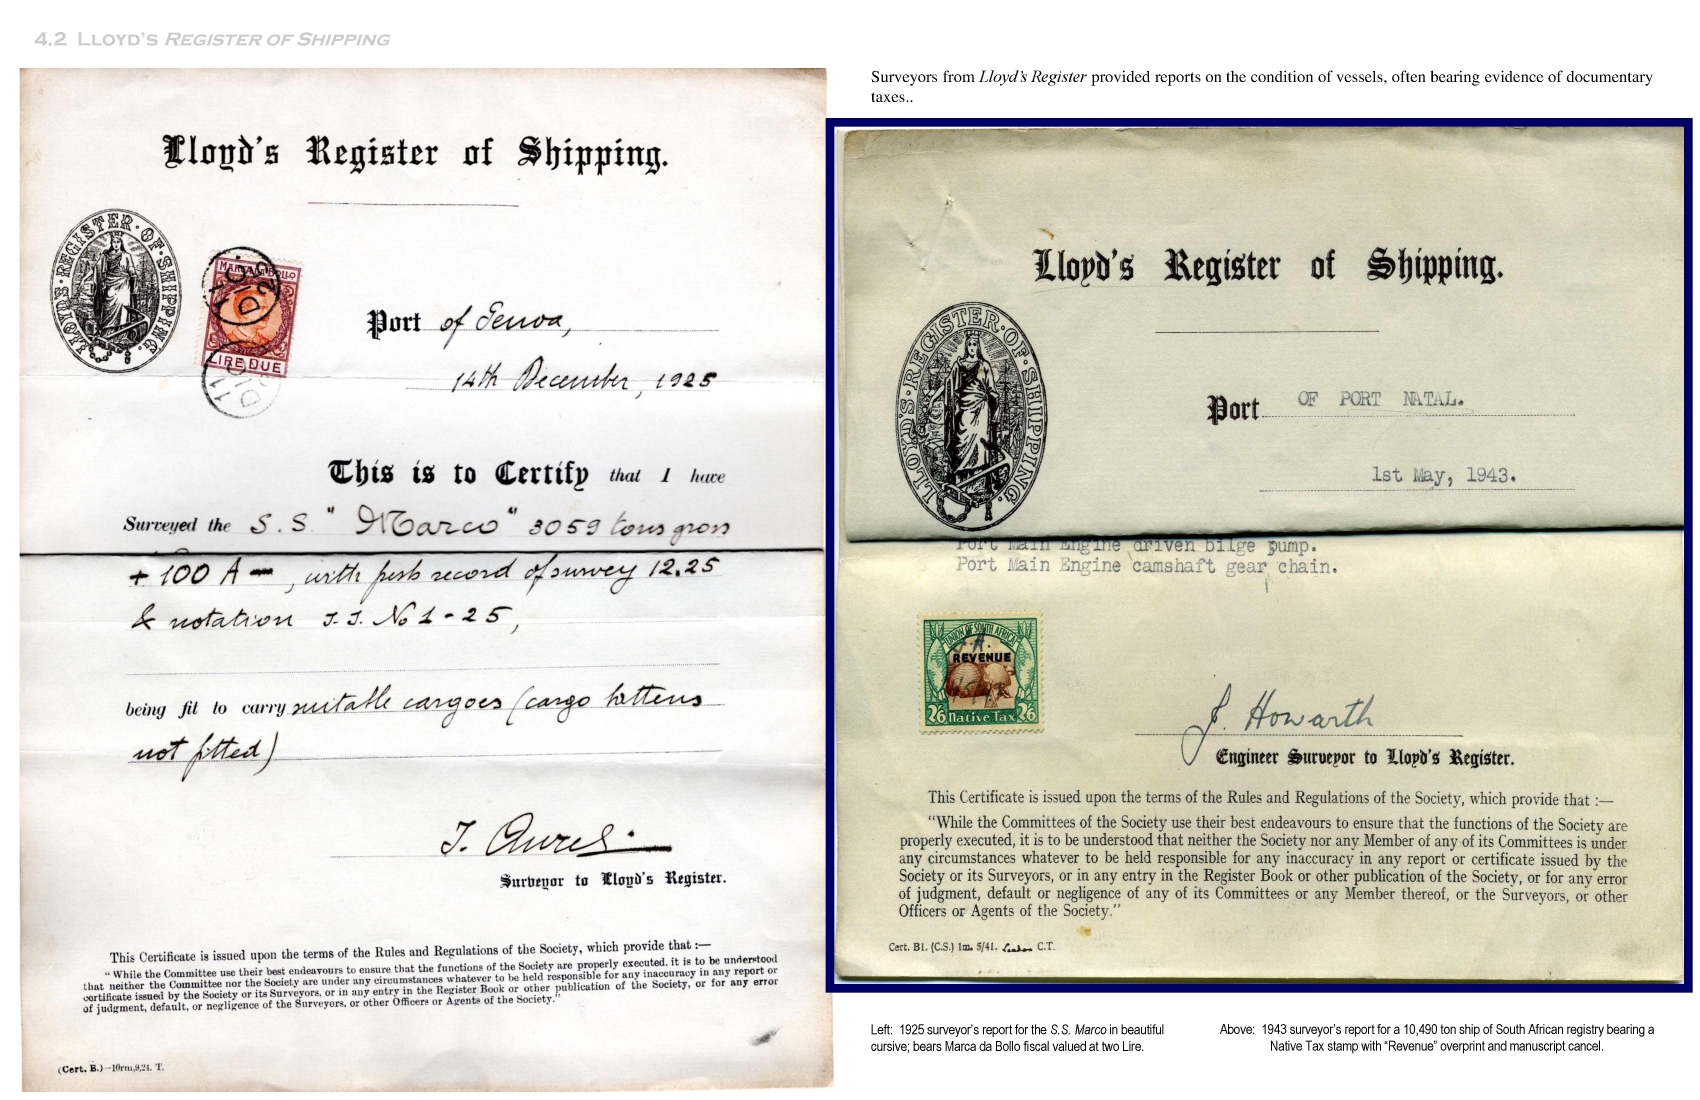 4.2 LLOYD'S REGISTER OF SHIPPING
Lloyd's Register of Shipping.
LLOYD'S·REGISTER·OF·SHIPPING·
MARCA DA BOLLO
LIRE DUE
Port of Genoa,
14th December, 1925
This is to Certify that I have
Surveyed the S.S. "Marco" 3059 tons gross
+ 100 A —, with fresh record of survey 12.25
& notation No 1-25,
being fit to carry suitable cargoes (cargo battens
not fitted)
Surveyor to Lloyd's Register.
This Certificate is issued upon the terms of the Rules and Regulations of the Society, which provide that :—
"While the Committee use their best endeavours to ensure that the functions of the Society are properly executed, it is to be understood
that neither the Committee nor the Society are under any circumstances whatever to be held responsible for any inaccuracy in any report or
certificate issued by the Society or its Surveyors, or in any entry in the Register Book or other publication of the Society, or for any error
of judgment, default, or negligence of the Surveyors, or other Officers or Agents of the Society."
(Cert. B.)—10m,9,24. T.
Surveyors from Lloyd's Register provided reports on the condition of vessels, often bearing evidence of documentary
taxes..
Lloyd's Register of Shipping.
LLOYD'S·REGISTER·OF·SHIPPING·
Port OF PORT NATAL.
1st May, 1943.
Port Main Engine driven bilge pump.
Port Main Engine camshaft gear chain.
UNION OF SOUTH AFRICA
REVENUE
2/6 Native Tax 2/6
J. Howarth
Engineer Surveyor to Lloyd's Register.
This Certificate is issued upon the terms of the Rules and Regulations of the Society, which provide that :—
"While the Committees of the Society use their best endeavours to ensure that the functions of the Society are
properly executed, it is to be understood that neither the Society nor any Member of any of its Committees is under
any circumstances whatever to be held responsible for any inaccuracy in any report or certificate issued by the
Society or its Surveyors, or in any entry in the Register Book or other publication of the Society, or for any error
of judgment, default or negligence of any of its Committees or any Member thereof, or the Surveyors, or other
Officers or Agents of the Society."
Cert. B1. (C.S.) 1m. 5/41. London C.T.
Left: 1925 surveyor's report for the S.S. Marco in beautiful
cursive; bears Marca da Bollo fiscal valued at two Lire.
Above: 1943 surveyor's report for a 10,490 ton ship of South African registry bearing a
Native Tax stamp with "Revenue" overprint and manuscript cancel.